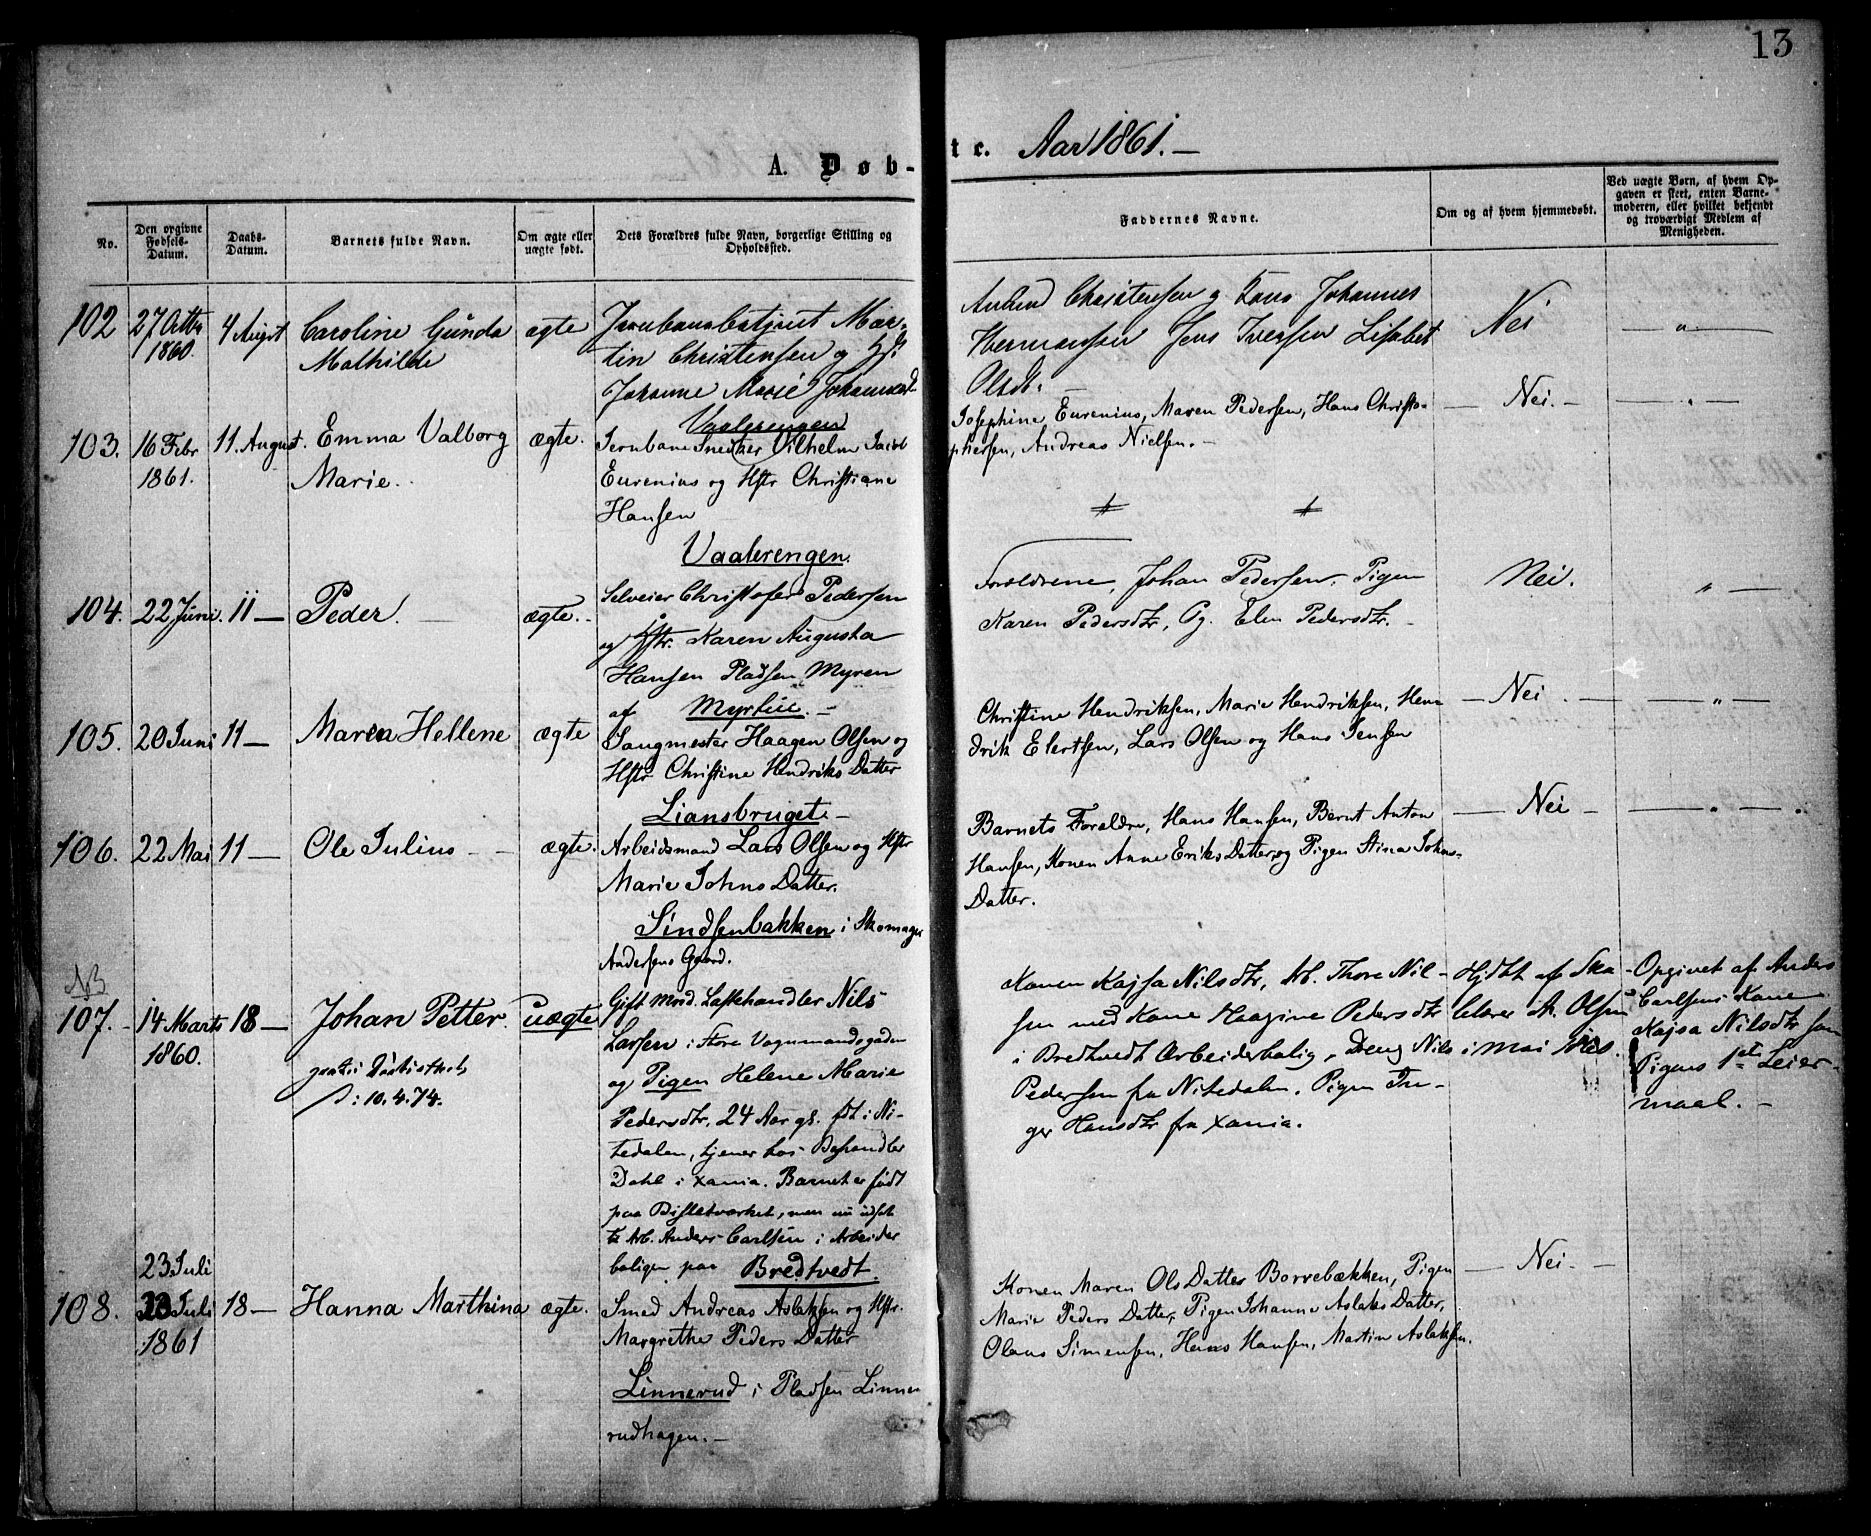 13
A. Døb-
te. Aar 1861. —
No.
Den opgivne Fødsels-Datum.
Daabs-Datum.
Barnets fulde Navn.
Om ægte eller uægte født.
Dets Forældres fulde Navn, borgerlige Stilling og Opholdssted.
Faddernes Navne.
Om og af hvem hjemmedøbt.
Ved uægte Børn, af hvem Opgaven er skeet, enten Barnemoderen, eller hvilket bekjendt og troværdigt Medlem af Menigheden.
102 27 Octbr 4 Augst Caroline Gunda ægte
1860. Mathilde
Jernbanebetjent Mar-
tin Christensen og Hst.
Johanne Marie Johannesd
Vaalerengen
Christensen og Hans Johannes
Hermansen Jens Iversen Lisabet
Olsdt. —
Nei — " —
103. 16 Febr 11. August. Emma Valborg ægte.
1861. Marie.
Jernbane Snedker Vilhelm Jacob
Eurenius og Hstr Christiane
Hansen
Vaalerengen.
Josephine Eurenius, Maren Pedersen, Hans Christo-
phersen, Andreas Nielsen. —
— Nei. — — " —
104. 22 Juni. 11 — Peder. — ægte. -
Selveier Christofer Pedersen
og Hstr. Karen Augusta
Hansen Pladsen Myren
af Myrlie. —
Forældrene, Johan Pedersen, Pigen
Karen Pedersdtr, Pg. Elen Pedersdtr. —
Nei. " —
105. 20 Juni 11 — Maren Hellene ægte
Saugmester Haagen Olsen og
Hstr Christine Hendriks Datter
Liansbruget —
Christine Hendriksen, Marie Hendriksen, Hen
drik Elertsen, Lars Olsen og Hans Jensen
— Nei — — " —
106. 22 Mai 11 — Ole Julius — ægte.
Arbeidsmand Lars Olsen og Hstr
Marie Johns Datter.
Sindsenbakken i Skomager
Andersens Gaard.
Barnets Forældre, Hans Hansen, Bernt Anton
Hansen, Konen Anne Eriks Datter og Pigen Stina Johns-
Datter.
— Nei — — " —
NB
107. - 14 Marts 18 — Johan Petter. uægte
1860.
10.4.74.
Gift Mnd. Læstehandler Nils
Larsen i Store Vognmandsgaden
og Pigen Helene Marie
Pedersdtr. 24 Aar gl. fdt i Ni-
tedalen, tjener hos Boghandler
Dahl i Xania. Barnet er født
paa Bisletverket, men nu udsat
til Arb. Anders Carlsen i Arbeider
boligen paa Bredtvedt.
Konen Kajsa Nilsdtr, Ab. Thore Nil-
sen med Kone Haagine Pedersdtr
i Bredtvedt Arbeiderbolig, Dreng Nils
Pedersen fra Nitedalen. Pigen In-
ger Hansdtr fra Xania.
Hjdbt af Sko
lelærer A. Olsen
i Mai 1860.
Opgivet af Anders
Carlsens Kone
Kajsa Nilsdtr som
Pigens 1ste Leier-
maal. —
23 Juli
108. 23 Juli 18 — Hanna Marthina ægte.
1861
Smed Andreas Aslaksen og Hstr.
Margrethe Peders Datter
Linnerud i Pladsen Linne
rudhagen. —
Konen Maren Ols Datter Borrebækken, Pigen
Marie Peders Datter, Pigen Johanne Aslaks Datter,
Olaus Simensen, Hans Hansen, Martin Aslaksen.
— Nei. —